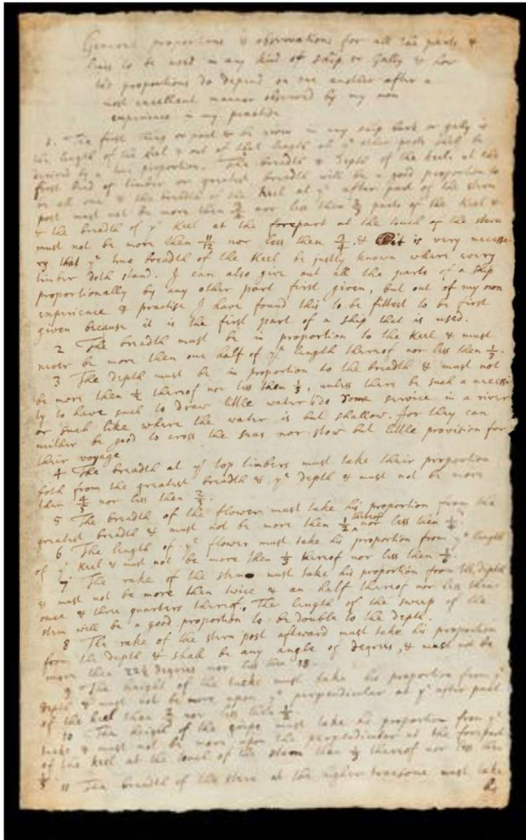 General proportions & observations for all the parts &
lines to be used in any kind of ship or Gally & how
the proportions do depend on one another after a
most excellent manner observed by my own
experience in my practise
1. The first thing or part to be given in any ship bark or gally is
the length of the Keel & out of that length all yᵉ other parts shall be
by a true proportion. The breadth & depth of the Keele at the
first bend of timber or greatest breadth will be a good proportion to
be all one & the breadth of the Keel at yᵉ after part of the stern
post must not be more then nor less then parts of the Keel &
& the breadth of yᵉ Keel at the forepart at the touch of the stem
must not be more then nor less then 3/4. & it is very necessa
ry that yᵉ true breadth of the Keel be justly known where every
timber doth stand. I can also give out all the parts of a ship
proportionally by any other part first given, but out of my own
experience & practise I have found this to be fittest to be first
given because it is the first part of a ship that is used.
2 The breadth must be in proportion to the Keel & must
never be more then one half of yᵉ length thereof nor less then
3 The depth must be in proportion to the breadth & must not
be more then 1/2 thereof nor less then 1/3, unless there be such a necessi
ty to have such to draw little water & do some service in a river
or such like where the water is but shallow, for they can
neither be good to cross the seas nor stow but little provision for
their voyage
4 The breadth at yᵉ top timbers must take their proportion
both from the greatest breadth & yᵉ depth & must not be more
then 4/5 nor less then 2/3.
5 The breadth of the flower must take his proportion from the
greatest breadth & must not be more then 1/2 thereof nor less then
6 The length of yᵉ flower must take his proportion from yᵉ length
of yᵉ Keel & must not be more then 1/3 thereof nor less then
7 The rake of the stem must take his proportion from the depth
& must not be more then twice & an half thereof nor less then
once & three quarters thereof. The length of the sweep of the
stem will be a good proportion to be double to the depth.
8 The rake of the stern post afterward must take his proportion
from the depth & shall be any angle of degrees, & must not be
more then 22½ degrees nor less then 18.
9 The height of the tucke must take his proportion from yᵉ
depth & must not be more upon yᵉ perpendicular at yᵉ after part
of the keel then nor less then
10 The height of the gripe must take his proportion from yᵉ
tucke & must not be more upon the perpendicular at the forepart
of the keel at the touch of the stem then thereof nor less then
11 The breadth of the stern at the higher transome must take